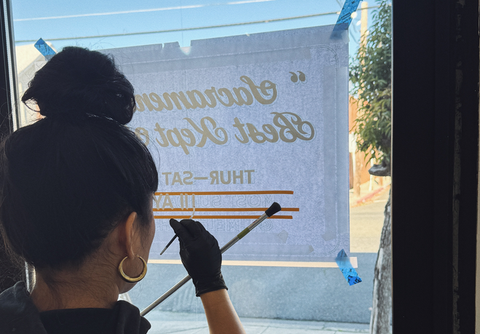 “Sacramen
Best Kept
THUR—SAT